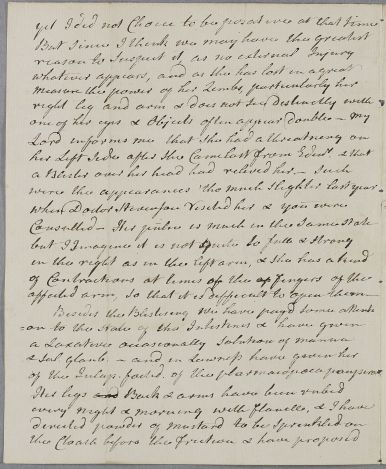 yet I did not Choice to be posative at that time
But Since I think we may have the greatest
reason to Suspect it, as no external Injury
whatever appears, and as she has lost in a great
measure the power of her Limbs, particularly her
right leg and arm & does not See Distinctly with
one of his eyes & Objects often appear Double - My
Lord informs me that She had a threatning on
his Left Side after She Came last from Edinr. & that
a Blister over his head had relived her - Such
were the appearances tho much Slighter last year
when Doctor Stevenson Visited her & you were
Consulted - His pulse is much in the Same state
but I Imagine it is not quite So full & strong
in the right as in the left arm, & She has a kind
of Contractions at times of the Fingers of the
affected arm, so that it is difficult to open them -
Besides the Blistering We have payd some attenti
=on to the State of this Intestines & have given
a Laxative occasionally Solution of manna
& Sal. Glaub. - and in Lowness have given her
of the Julap. of the pharmacopoea pauperum
His legs Back & arms have been rubed
every night & morning with flanelle, & I have
directed powder of mustard to be Sprinkled on
the Cloath before the friction & have proposed